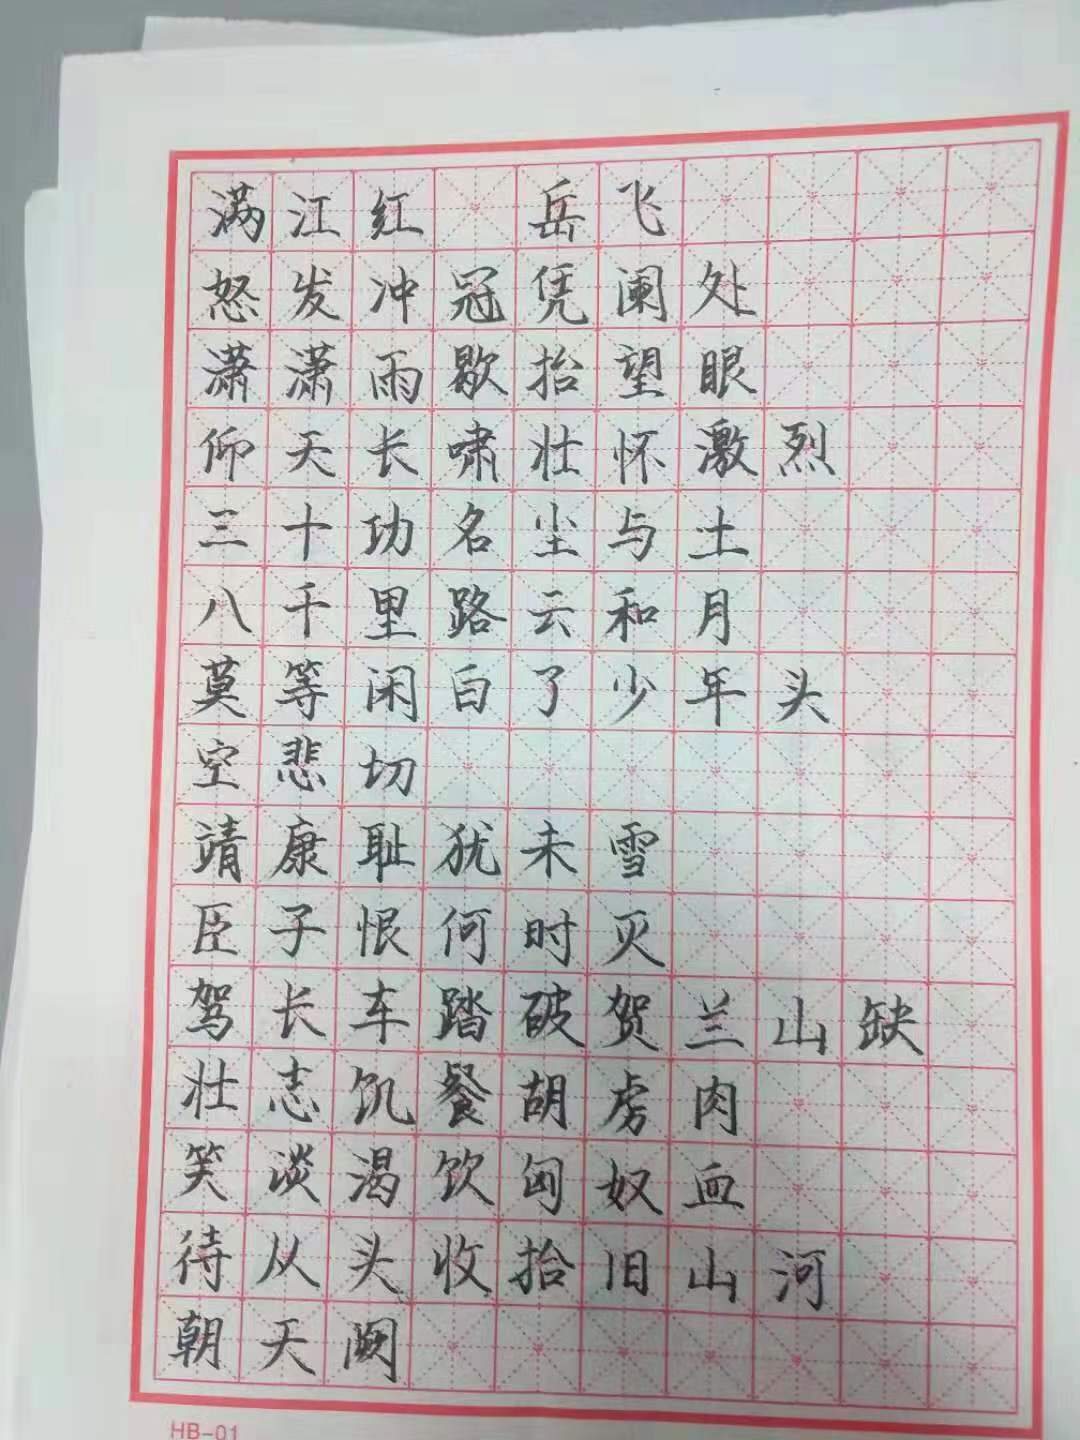 满江红 岳飞
怒发冲冠凭阑处
潇潇雨歇抬望眼
仰天长啸壮怀激烈
三十功名尘与土
八千里路云和月
莫等闲白了少年头
空悲切
靖康耻犹未雪
臣子恨何时灭
驾长车踏破贺兰山缺
壮志饥餐胡虏肉
笑谈渴饮匈奴血
待从头收拾旧山河
朝天阙
HB-01